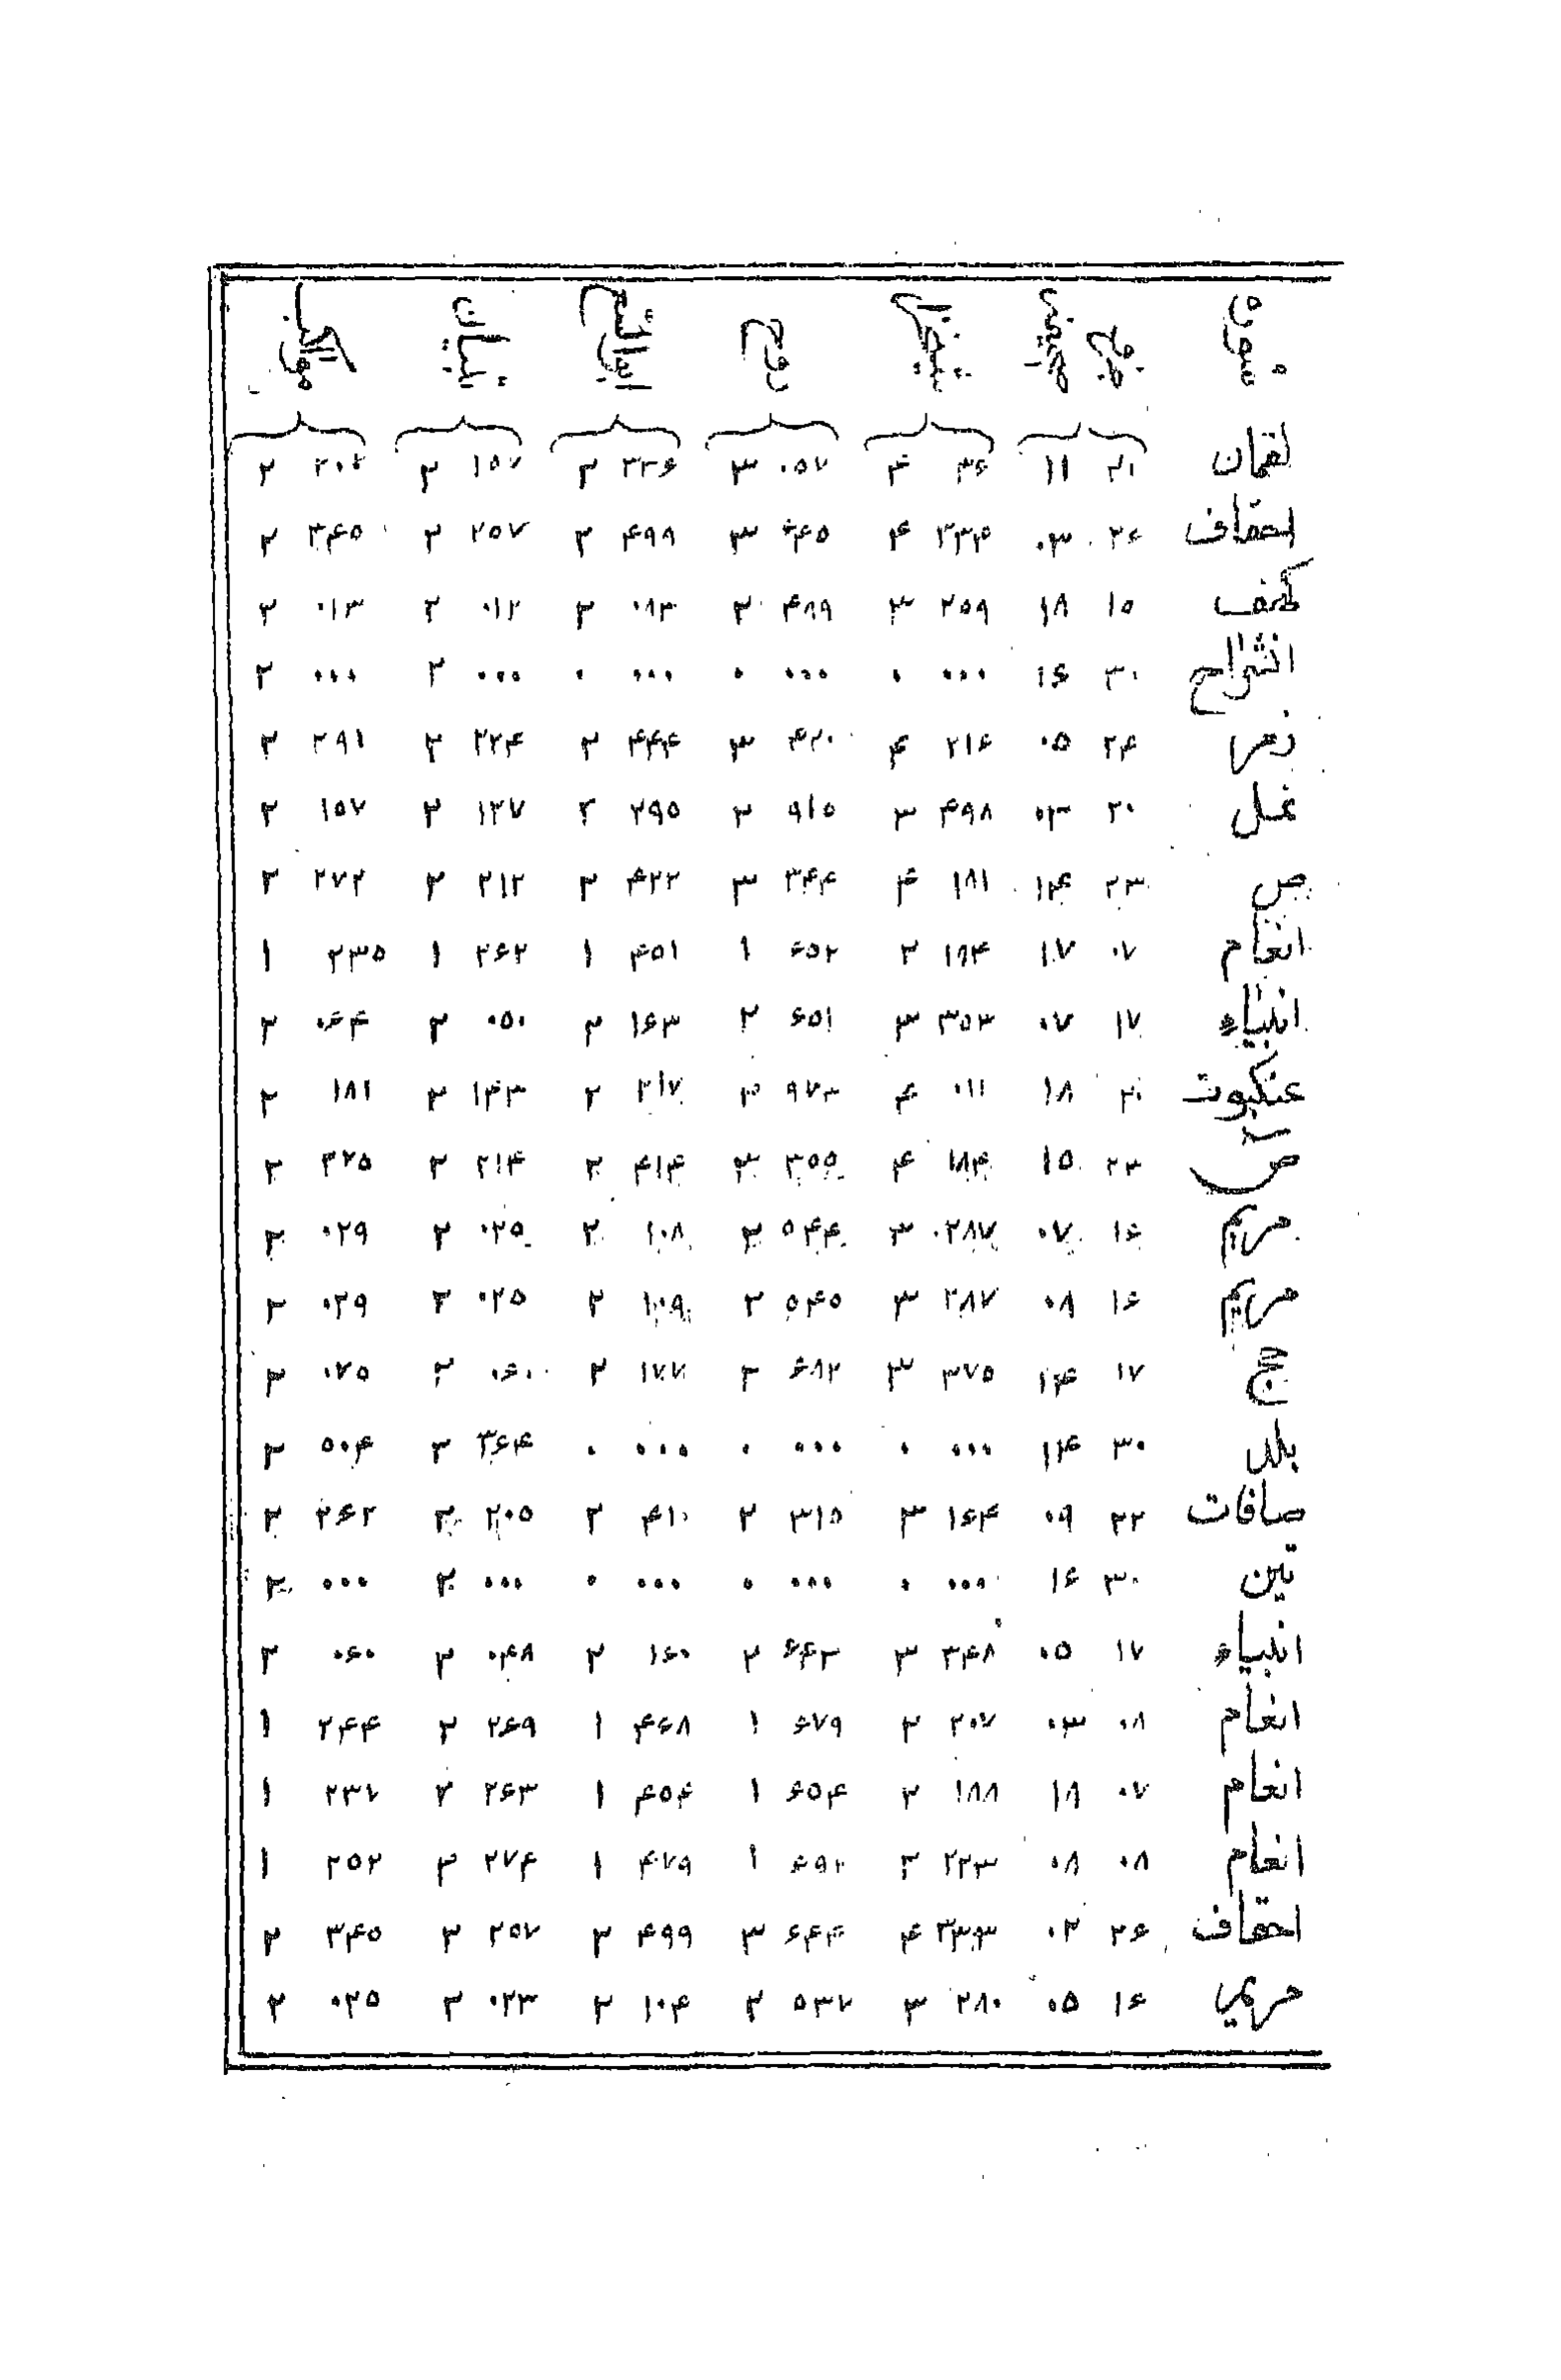 لقمان ۲۰ ۱۱ ۳۶ ۴ ۰۵۷ ۳ ۲۳۶ ۲ ۱۵۷ ۲ ۲۰۲ ۲
احقاف ۲۶ ۰۳ ۲۳۴ ۴ ۶۴۵ ۳ ۴۹۹ ۲ ۲۵۷ ۲ ۳۴۵ ۲
کهف ۱۵ ۱۸ ۲۵۹ ۳ ۴۸۹ ۲ ۰۸۳ ۲ ۰۱۲ ۲ ۰۱۳ ۲
انشراح ۳۰ ۱۶ ۰۰۰ ۰ ۰۰۰ ۰ ۰۰۰ ۰ ۰۰۰ ۲ ۰۰۰ ۲
زمر ۲۴ ۰۵ ۲۱۶ ۴ ۴۲۰ ۳ ۴۴۴ ۲ ۲۲۴ ۲ ۲۹۱ ۲
نمل ۲۰ ۰۳ ۴۹۸ ۳ ۹۱۵ ۲ ۲۹۵ ۲ ۱۲۷ ۲ ۱۵۷ ۲
ص ۲۳ ۱۴ ۱۸۱ ۴ ۳۴۴ ۳ ۴۲۲ ۲ ۲۱۲ ۲ ۲۷۲ ۲
انعام ۰۷ ۱۷ ۱۸۴ ۲ ۶۵۲ ۱ ۴۵۱ ۱ ۲۶۲ ۱ ۲۳۵ ۱
انبیاء ۱۷ ۰۷ ۳۵۳ ۳ ۶۵۱ ۲ ۱۶۳ ۲ ۰۵۰ ۲ ۰۶۴ ۲
عنکبوت ۲۰ ۱۸ ۰۱۱ ۴ ۹۷۳ ۲ ۳۱۷ ۲ ۱۴۳ ۲ ۱۸۱ ۲
ص ۲۳ ۱۵ ۱۸۴ ۴ ۳۵۵ ۳ ۴۱۴ ۲ ۲۱۴ ۲ ۲۷۵ ۲
مریم ۱۶ ۰۷ ۲۸۷ ۳ ۵۴۴ ۲ ۱۰۸ ۲ ۰۲۵ ۲ ۰۲۹ ۲
مریم ۱۶ ۰۸ ۲۸۷ ۳ ۵۴۵ ۲ ۱۰۹ ۲ ۰۲۵ ۲ ۰۲۹ ۲
حج ۱۷ ۱۴ ۳۷۵ ۳ ۶۸۲ ۲ ۱۷۷ ۲ ۰۶۰ ۲ ۰۷۵ ۲
بلد ۳۰ ۱۴ ۰۰۰ ۰ ۰۰۰ ۰ ۰۰۰ ۰ ۳۶۴ ۲ ۵۰۴ ۲
صافات ۲۳ ۰۹ ۱۶۴ ۳ ۳۱۵ ۲ ۴۱۰ ۲ ۲۰۵ ۲ ۲۶۲ ۲
تین ۳۰ ۱۶ ۰۰۰ ۰ ۰۰۰ ۰ ۰۰۰ ۰ ۰۰۰ ۲ ۰۰۰ ۲
انبیاء ۱۷ ۰۵ ۳۴۸ ۳ ۶۴۲ ۲ ۱۶۰ ۲ ۰۴۸ ۲ ۰۶۰ ۲
انعام ۰۸ ۰۳ ۲۰۷ ۲ ۶۷۹ ۱ ۴۶۸ ۱ ۲۶۹ ۲ ۲۴۴ ۱
انعام ۰۷ ۱۸ ۱۸۸ ۲ ۶۵۴ ۱ ۴۵۴ ۱ ۲۶۳ ۲ ۲۳۷ ۱
انعام ۰۸ ۰۸ ۲۲۳ ۲ ۶۹۲ ۱ ۴۷۹ ۱ ۲۷۴ ۲ ۲۵۲ ۱
احقاف ۲۶ ۰۲ ۳۳۳ ۴ ۶۴۴ ۳ ۴۹۹ ۲ ۲۵۷ ۲ ۳۴۵ ۲
مریم ۱۶ ۰۵ ۲۸۰ ۳ ۵۳۷ ۲ ۱۰۴ ۲ ۰۲۳ ۲ ۰۲۵ ۲